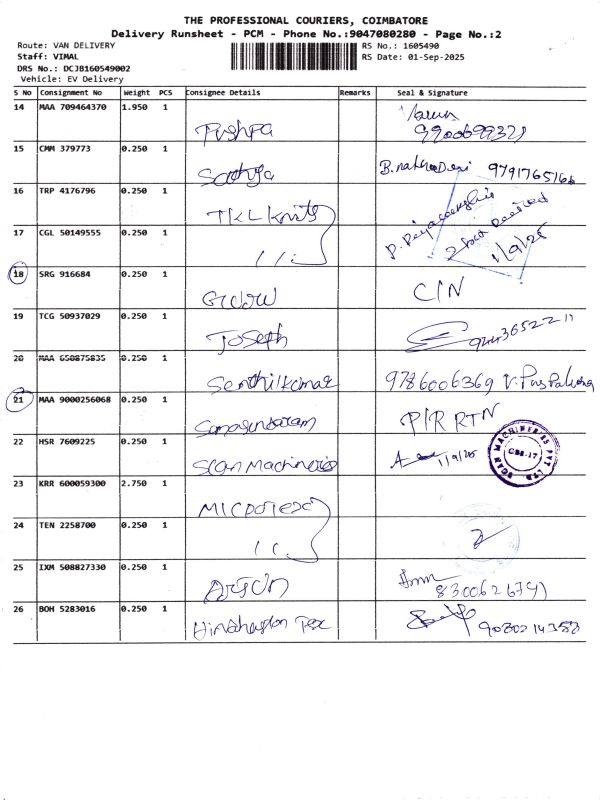 THE PROFESSIONAL COURIERS, COIMBATORE
Delivery Runsheet - PCM - Phone No.:9047080280 - Page No.:2
Route: VAN DELIVERY
Staff: VIMAL
DRS No.: DCJB160549002
Vehicle: EV Delivery
RS No.: 1605490
RS Date: 01-Sep-2025
S No Consignment No Weight PCS Consignee Details Remarks Seal & Signature
14 MAA 709464370 1.950 1
Pushpa 9900699321
15 CMM 379773 0.250 1
Sathya 9791765166
16 TRP 4176796 0.250 1
TKL Knits
17 CGL 50149555 0.250 1
11 1/9/25
18 SRG 916684 0.250 1
C/N
19 TCG 50937029 0.250 1
Joseph
20 MAA 650875835 0.250 1
Senthilkumar 9786006369
21 MAA 9000256068 0.250 1
Somasundaram P/R RTN
22 HSR 7609225 0.250 1
Scan Machineries 1/9/25
SCAN MACHINERIES PVT LTD
CBE-17
23 KRR 600059300 2.750 1
Microtex
24 TEN 2258700 0.250 1
11
25 IXM 508827330 0.250 1
8300626741
26 BOH 5283016 0.250 1
Hindhustan Tex